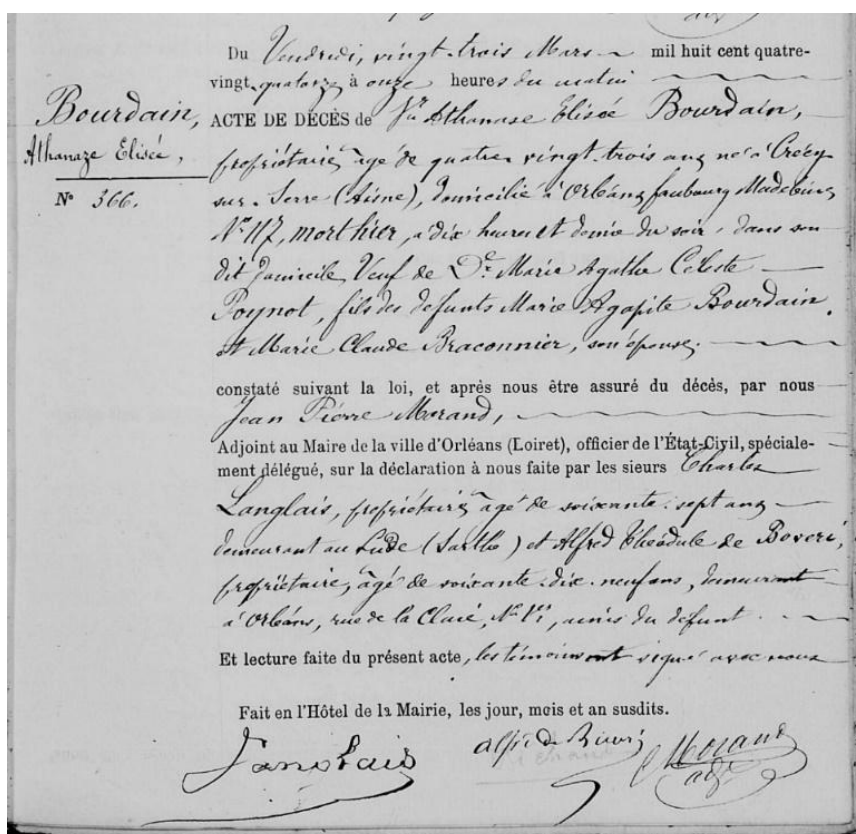 Du Vendredi, vingt-trois Mars mil huit cent quatre-
vingt-quatorze à onze heures du matin
Bourdain,
Athanaze Elisée,
N° 366.
ACTE DE DÉCÈS de Athanase Elisée Bourdain,
propriétaire, âgé de quatre vingt-trois ans né à Crécy
sur-Serre (Aisne), domicilié à Orléans faubourg Madeleine
N° 117, mort hier, à dix heures et demie du soir, dans son
dit domicile, Veuf de De Marie Agathe Céleste
Poynot, fils des défunts Marie Agapite Bourdain
et Marie Claude Braconnier, son épouse.
constaté suivant la loi, et après nous être assuré du décès, par nous
Jean Pierre Morand,
Adjoint au Maire de la ville d'Orléans (Loiret), officier de l'État-Civil, spéciale-
ment délégué, sur la déclaration à nous faite par les sieurs Charles
Langlais, propriétaire, âgé de soixante-sept ans
demeurant au Lude (Sarthe) et Alfred Théodule de
propriétaire, âgé de soixante-dix-neuf ans, demeurant
à Orléans, rue de la N° amis du défunt.
Et lecture faite du présent acte, les témoins ont signé avec nous
Fait en l'Hôtel de la Mairie, les jour, mois et an susdits.
Langlais Alfred de Morand
adj